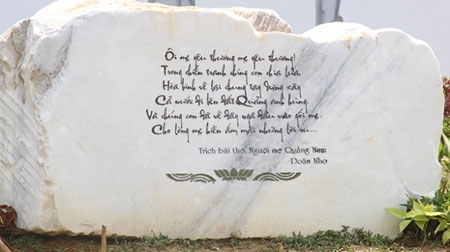 Ôi mẹ yêu thương mẹ yêu thương!
Trong chiến tranh chúng con chia lửa
Hòa bình về lại chung tay dựng xây
Cả nước đi lên đất Quảng anh hùng
Và chúng con đã về đây ngả đầu vào gối mẹ
Cho lòng mẹ hiền ấm mãi những lời ru...
Trích bài thơ, Người mẹ Quảng Nam
Doãn Nho